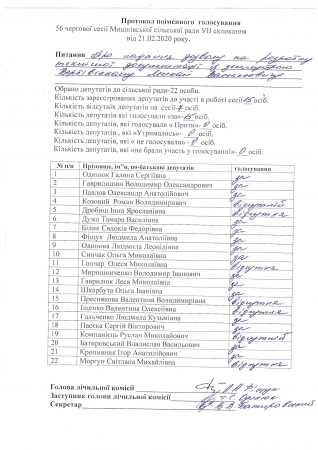 Протокол поіменного голосування
56 чергової сесії Мошнівської сільської ради УІІ скликання
від 21.02.2020 року.
Питання Про надання дозволу на розробку
технічної документації із землеустрою
Обрано депутатів до сільської ради-22 особи.
Кількість зареєстрованих депутатів до участі в роботі сесії 15 осіб.
Кількість відсутніх депутатів на сесії 7 осіб.
Кількість депутатів, які голосували «за» 15 осіб.
Кількість депутатів, які голосували « Проти» 0 осіб.
Кількість депутатів, які «Утримались» 0 осіб.
Кількість депутатів, які « не голосували» 0 осіб.
Кількість депутатів, які «не брали участь у голосуванні» 0 осіб.
№ п/п Прізвище, ім"я, по-батькові депутатів голосування
1 Одинюк Галина Сергіївна за
2 Гаврилишин Володимир Олександрович за
3 Павлов Олександр Анатолійович за
4 Козовий Роман Володимирович відсутній
5 Дробиш Інна Ярославівна відсутня
6 Дужа Тамара Василівна за
7 Білик Євдокія Федорівна за
8 Фіщук Людмила Анатоліївна за
9 Одинокa Людмила Леонідівна за
10 Синчак Ольга Миколаївна за
11 Гончар Олеся Миколаївна відсутня
12 Мирошниченко Володимир Іванович за
13 Гаврилюк Леся Миколаївна за
14 Шкарбута Ольга Іванівна за
15 Преснякова Валентина Володимирівна відсутня
16 Іщенко Валентина Олексіївна відсутня
17 Гальченко Людмила Кузьмівна за
18 Пасєка Сергій Вікторович за
19 Компанієць Руслан Миколайович відсутній
20 Батировський Владислав Васильович за
21 Кропивник Ігор Анатолійович за
22 Моргун Світлана Михайлівна відсутня
Голова лічильної комісії Л.А. Фіщук
Заступник голови лічильної комісії
Секретар В.В. Батировський